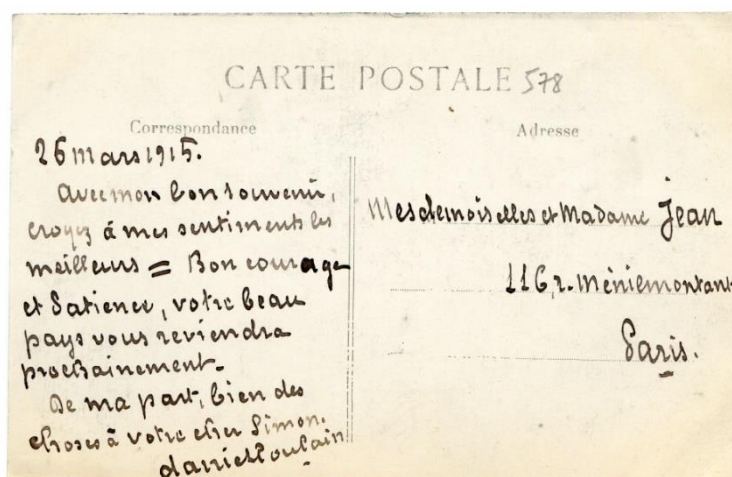 CARTE POSTALE 578
Correspondance
26 mars 1915.
Avec mon bon souvenir,
croyez à mes sentiments les
meilleurs = Bon courage
et Patience, votre beau
pays vous reviendra
prochainement.
De ma part, bien des
choses à votre cher Simon.
daniel Poulain
Adresse
Mesdemoiselles et Madame Jean
116, r. Ménilmontant
Paris.